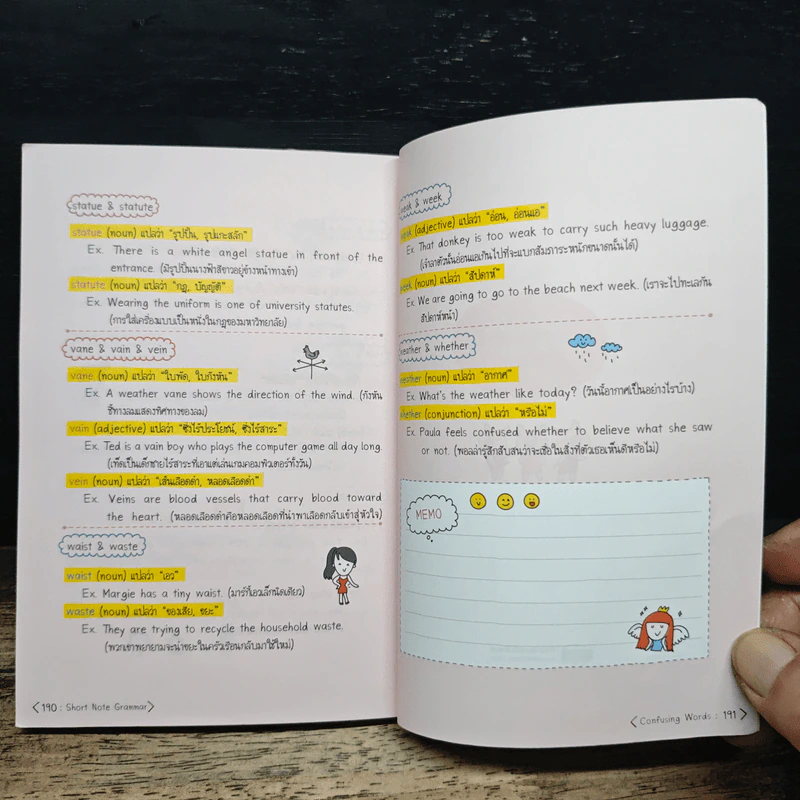 statue & statute
statue (noun) แปลว่า "รูปปั้น, รูปแกะสลัก"
Ex. There is a white angel statue in front of the
entrance. (มีรูปปั้นนางฟ้าสีขาวอยู่ข้างหน้าทางเข้า)
statute (noun) แปลว่า "กฎ, บัญญัติ"
Ex. Wearing the uniform is one of university statutes.
(การใส่เครื่องแบบเป็นหนึ่งในกฎของมหาวิทยาลัย)
vane & vain & vein
vane (noun) แปลว่า "ใบพัด, ใบกังหัน"
Ex. A weather vane shows the direction of the wind. (กังหัน
ชี้ทางลมแสดงทิศทางของลม)
vain (adjective) แปลว่า "ซึ่งไร้ประโยชน์, ซึ่งไร้สาระ"
Ex. Ted is a vain boy who plays the computer game all day long.
(เท็ดเป็นเด็กชายไร้สาระที่เอาแต่เล่นเกมคอมพิวเตอร์ทั้งวัน)
vein (noun) แปลว่า "เส้นเลือดดำ, หลอดเลือดดำ"
Ex. Veins are blood vessels that carry blood toward
the heart. (หลอดเลือดดำคือหลอดเลือดที่นำพาเลือดกลับเข้าสู่หัวใจ)
waist & waste
waist (noun) แปลว่า "เอว"
Ex. Margie has a tiny waist. (มาร์กี้เอวเล็กนิดเดียว)
waste (noun) แปลว่า "ของเสีย, ขยะ"
Ex. They are trying to recycle the household waste.
(พวกเขาพยายามจะนำขยะในครัวเรือนกลับมาใช้ใหม่)
190 : Short Note Grammar
& week
(adjective) แปลว่า "อ่อน, อ่อนแอ"
Ex. That donkey is too weak to carry such heavy luggage.
(เจ้าลาตัวนั้นอ่อนแอเกินไปที่จะแบกสัมภาระหนักขนาดนั้นได้)
(noun) แปลว่า "สัปดาห์"
Ex. We are going to go to the beach next week. (เราจะไปทะเลกัน
สัปดาห์หน้า)
weather & whether
weather (noun) แปลว่า "อากาศ"
Ex. What's the weather like today? (วันนี้อากาศเป็นอย่างไรบ้าง)
whether (conjunction) แปลว่า "หรือไม่"
Ex. Paula feels confused whether to believe what she saw
or not. (พอลล่ารู้สึกสับสนว่าจะเชื่อในสิ่งที่ตัวเธอเห็นดีหรือไม่)
MEMO
Confusing Words : 191